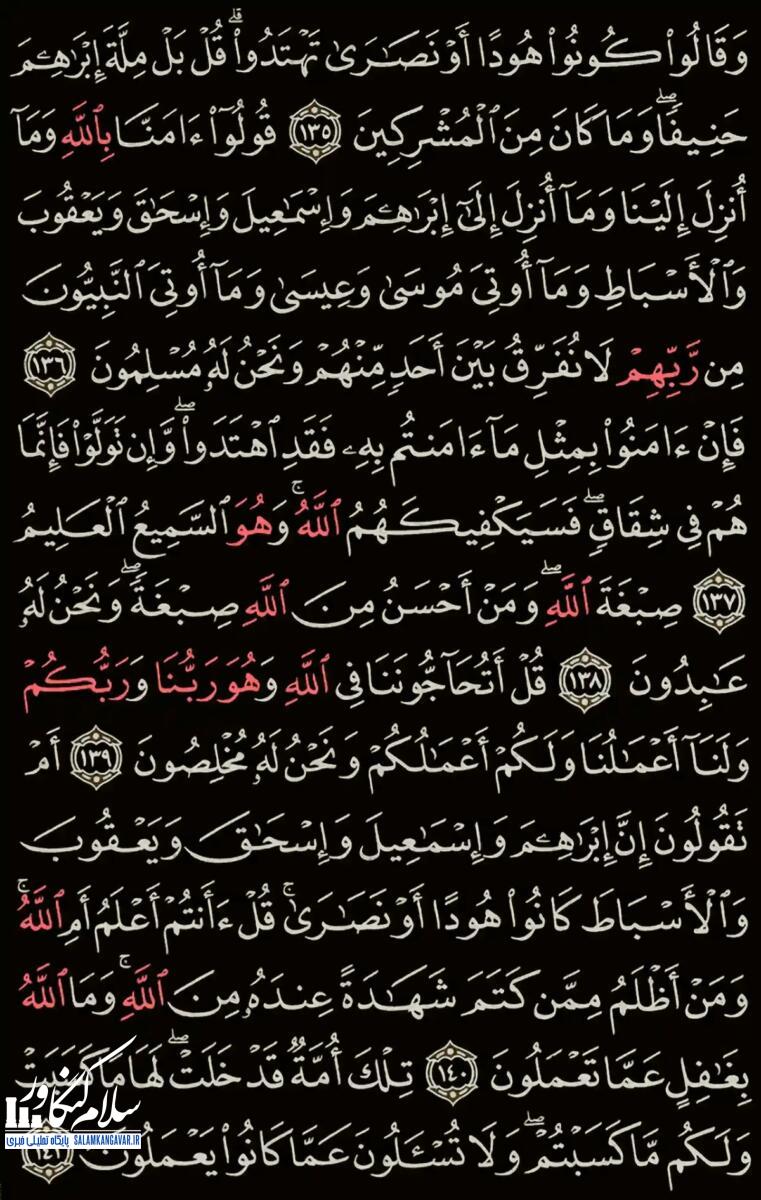 وَقَالُوا۟ كُونُوا۟ هُودًا أَوْ نَصَـٰرَىٰ تَهْتَدُوا۟ ۗ قُلْ بَلْ مِلَّةَ إِبْرَٰهِـۧمَ
حَنِيفًا ۖ وَمَا كَانَ مِنَ ٱلْمُشْرِكِينَ ١٣٥ قُولُوٓا۟ ءَامَنَّا بِٱللَّهِ وَمَآ
أُنزِلَ إِلَيْنَا وَمَآ أُنزِلَ إِلَىٰٓ إِبْرَٰهِـۧمَ وَإِسْمَـٰعِيلَ وَإِسْحَـٰقَ وَيَعْقُوبَ
وَٱلْأَسْبَاطِ وَمَآ أُوتِىَ مُوسَىٰ وَعِيسَىٰ وَمَآ أُوتِىَ ٱلنَّبِيُّونَ
مِن رَّبِّهِمْ لَا نُفَرِّقُ بَيْنَ أَحَدٍ مِّنْهُمْ وَنَحْنُ لَهُۥ مُسْلِمُونَ ١٣٦
فَإِنْ ءَامَنُوا۟ بِمِثْلِ مَآ ءَامَنتُم بِهِۦ فَقَدِ ٱهْتَدَوا۟ ۖ وَّإِن تَوَلَّوْا۟ فَإِنَّمَا
هُمْ فِى شِقَاقٍ ۖ فَسَيَكْفِيكَهُمُ ٱللَّهُ ۚ وَهُوَ ٱلسَّمِيعُ ٱلْعَلِيمُ
١٣٧ صِبْغَةَ ٱللَّهِ ۖ وَمَنْ أَحْسَنُ مِنَ ٱللَّهِ صِبْغَةً ۖ وَنَحْنُ لَهُۥ
عَـٰبِدُونَ ١٣٨ قُلْ أَتُحَآجُّونَنَا فِى ٱللَّهِ وَهُوَ رَبُّنَا وَرَبُّكُمْ
وَلَنَآ أَعْمَـٰلُنَا وَلَكُمْ أَعْمَـٰلُكُمْ وَنَحْنُ لَهُۥ مُخْلِصُونَ ١٣٩ أَمْ
تَقُولُونَ إِنَّ إِبْرَٰهِـۧمَ وَإِسْمَـٰعِيلَ وَإِسْحَـٰقَ وَيَعْقُوبَ
وَٱلْأَسْبَاطَ كَانُوا۟ هُودًا أَوْ نَصَـٰرَىٰ ۗ قُلْ ءَأَنتُمْ أَعْلَمُ أَمِ ٱللَّهُ ۗ
وَمَنْ أَظْلَمُ مِمَّن كَتَمَ شَهَـٰدَةً عِندَهُۥ مِنَ ٱللَّهِ ۗ وَمَا ٱللَّهُ
بِغَـٰفِلٍ عَمَّا تَعْمَلُونَ ١٤٠ تِلْكَ أُمَّةٌ قَدْ خَلَتْ ۖ لَهَا مَا كَسَبَتْ
وَلَكُم مَّا كَسَبْتُمْ ۖ وَلَا تُسْـَٔلُونَ عَمَّا كَانُوا۟ يَعْمَلُونَ ١٤١
سلام کنگاور
پایگاه تحلیلی خبری SALAMKANGAVAR.IR